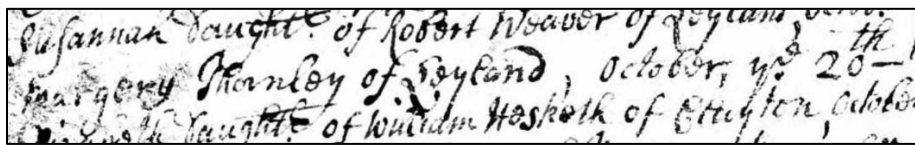 Susannah Daught.r of Robert Weaver of Leyland, Octob.
Margery Thornley of Leyland, October, y.e 20th
Daught.r of William Hesketh of Ettuſton, October